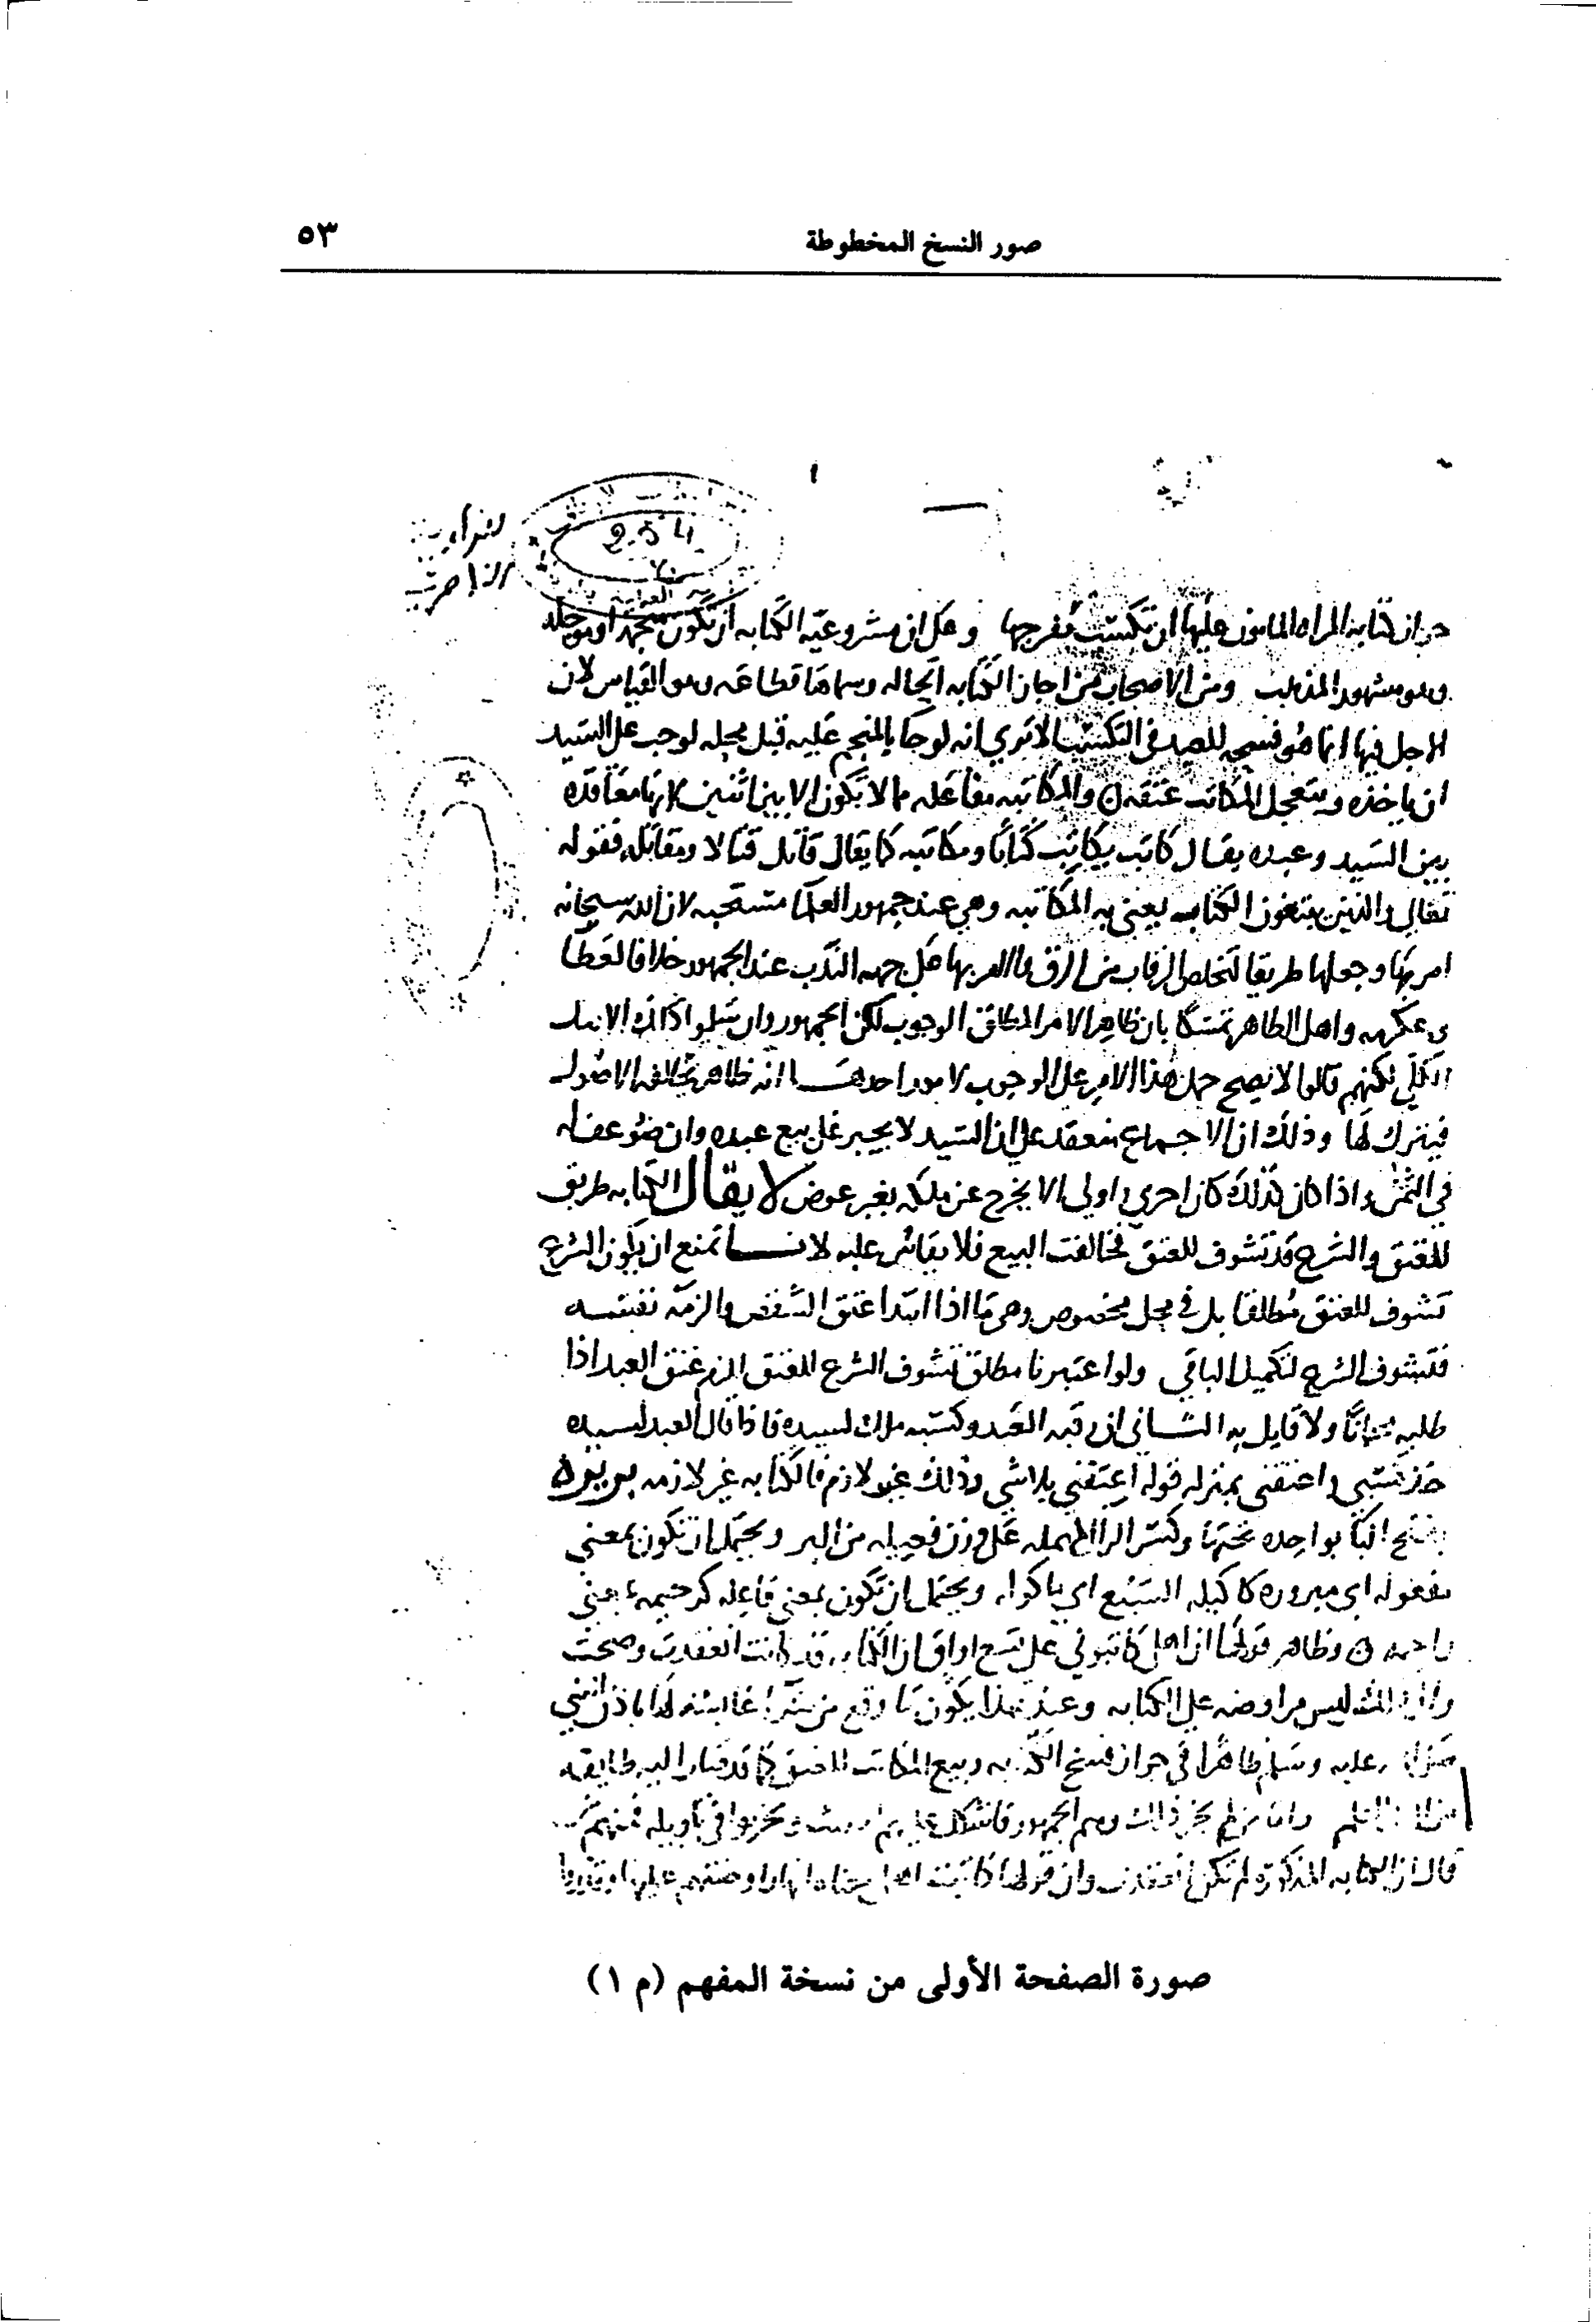 صور النسخ المخطوطة
٥٣
كتابة المراه المأمون عليها ان تكتسب بفرجها وعلى ان مشروعيّه الكتابه ان تكون منجمه او موجله
وهو مشهور المذهب ومن الاصحاب من اجاز الكتابه الحاله وسماها قطاعه وهو القياس لان
الاجل فيها انما هو فسحه للعبد في التكسب الا تري انه لو جا بالمنجم عليه قبل محله لوجب على السّيد
ان ياخذه ويتعجل المكاتب عتقه والمكاتبه مفاعله مما لا تكون الا بين اثنين لانها معاقده
بين السّيد وعبده يقال كاتب يكاتب كتابا ومكاتبه كما يقال قاتل قتالا ومقاتله فقوله
تعالي والذين يبتغون الكتاب يعني به المكاتبه وهي عند جمهور العلما مستحبه لان الله سبحانه
امر بها وجعلها طريقا لتخلص الرقاب من الرق فالامر بها على جهه الندب عند الجمهور خلافا لعطا
وعكرمه واهل الظاهر تمسّكا بان ظاهر الامر المطلق الوجوب لكن الجمهور وان سَلموا ذلك الاصل
الكلي لكنهم قالوا لا يصح حمل هذا الامر على الوجوب لامور احدها انه ظاهر يخالف الاصول
فيترك لها وذلك ان الاجماع منعقد على ان السّيد لا يجبر على بيع عبده وان ضوعف له
في الثمن واذا كان كذلك كان احري واولي الا يخرج عن ملكه بغير عوض لا يقال الكتابه طريق
للعتق والشرع قد تشوف للعتق فخالفت البيع فلا يقاس عليه لانا نمنع ان يكون الشرع
تشوف للعتق مُطلقا بل في محل مخصوص وهو ما اذا ابتدا عتق الشقص والزم نفسه
فتشوف الشرع لتكميل الباقي ولو اعتبرنا مطلق تشوف الشرع للعتق لزم عتق العبد اذا
طلبه مجانا ولا قايل به الثاني ان رقبه العَبد وكسبه ملك لسيده فاذا قال العبد لسيده
خذ كسبي واعتقني بمنزله قوله اعتقني بلا شي وذلك غير لازم فالكتابه غير لازمه بريرة
بفتح البا بواحده تحتها وكسر الرا المهمله على وزن فعيله من البر ويحتمل ان تكون بمعني
مفعوله اي مبروره كاكيله السّبُع اي ماكوله ويحتمل ان تكون بمعني فاعله كرحيمه بمعني
راحمه وظاهر قولها ان اهلي كاتبوني على تسع اواق ان الكتابه قد كانت انعقدت وصحت
وان ذلك ليس مراوضه على الكتابه وعند هذا يكون ما وقع من شرا عايشه لها باذن النبي
عليه وسَلم ظاهرا في جواز فسخ الكتابه وبيع المكاتب للعتق كما قد صار اليه طايفه
من اهل العلم واما من لم يجز ذلك وهم الجمهور فاشكل عليهم الحديث وتحزبوا في تاويله فمنهم من
قال ان الكتابه المذكورة لم تكن انعقدت وان قولها كاتبت اهلي معناه انها راوضتهم عليها
صورة الصفحة الأولى من نسخة المفهم (م ١)